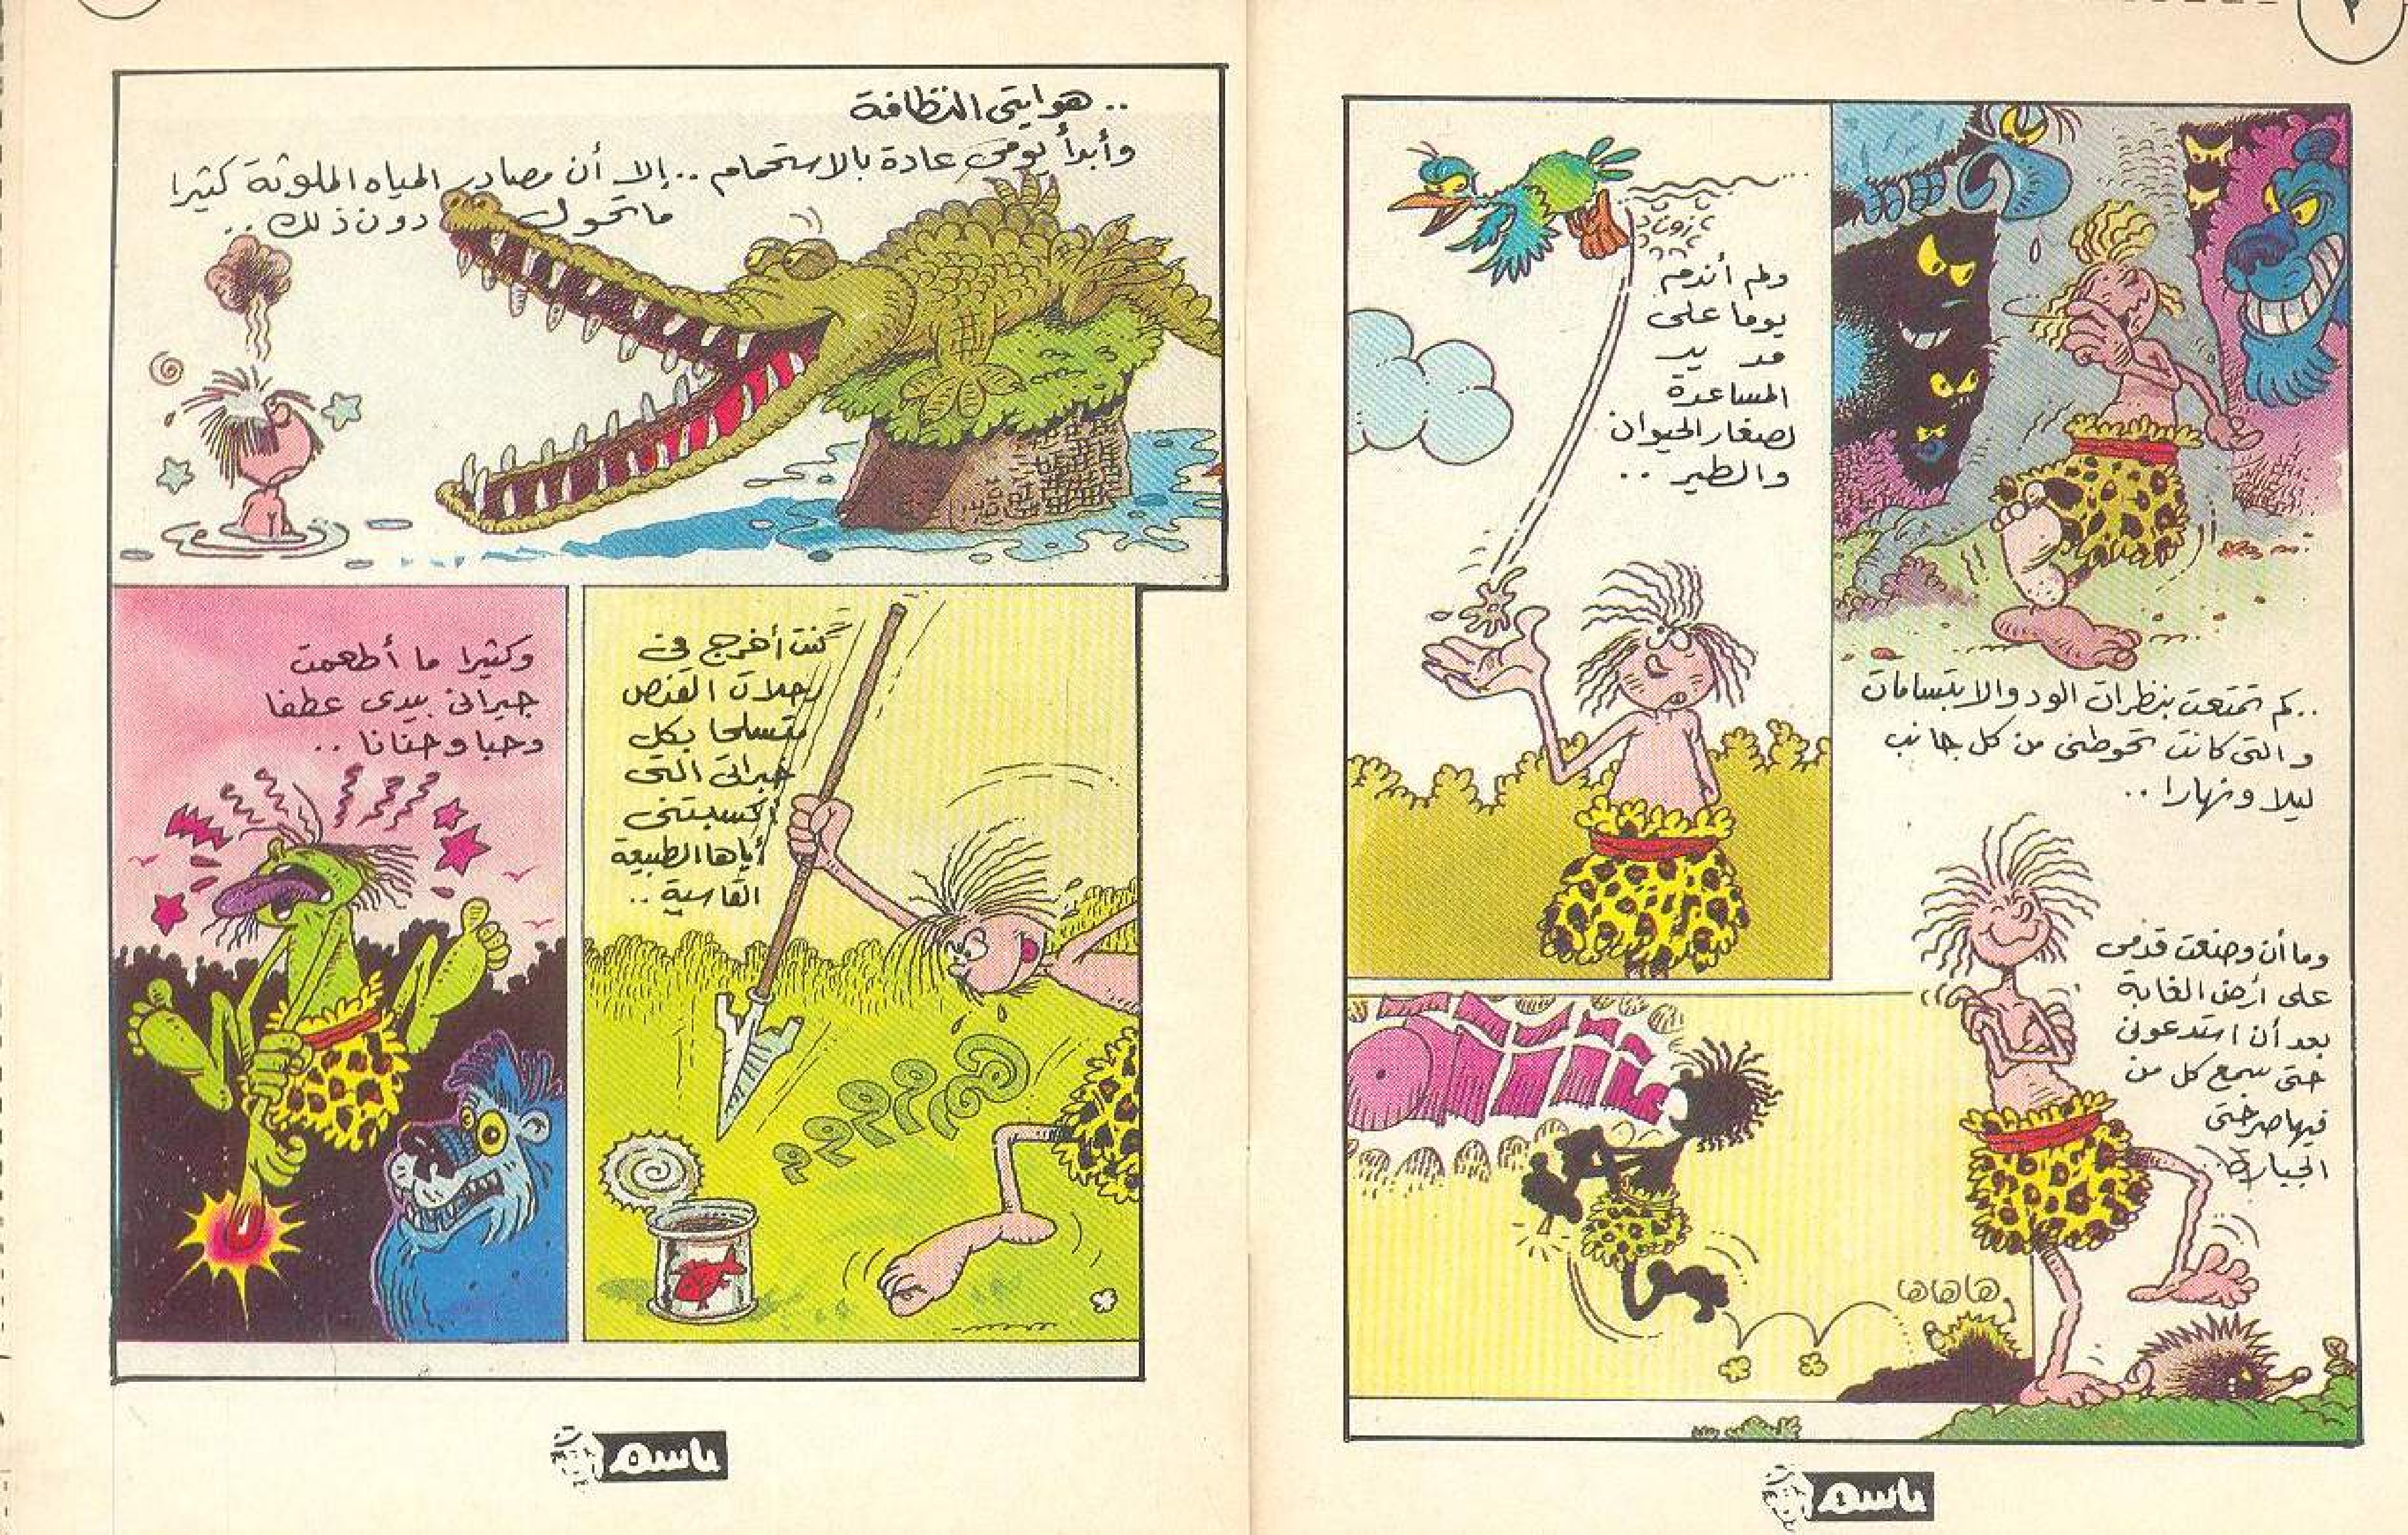 ٢
.. كم تمتعت بنظرات الود والابتسامات
والتى كانت تحوطنى من كل جانب
ليلا ونهارا ..
ولم أندم
يوما على
مد يد
المساعدة
لصغار الحيوان
والطير ..
وما أن وضعت قدمى
على أرض الغابة
بعد أن استدعونى
حتى سمع كل من
فيها صرختى
الجبارة ..
هاهاها
باسم
.. هوايتى النظافة
وأبدأ يومى عادة بالاستحمام .. إلا أن مصادر المياه الملوثة كثيرا
ما تحول دون ذلك ..
كنت أخرج فى
رحلات القنص
متسلحا بكل
خبراتى التى
أكسبتنى
أياها الطبيعة
القاسية ..
وكثيرا ما أطعمت
جيرانى بيدى عطفا
وحبا وحنانا ..
باسم